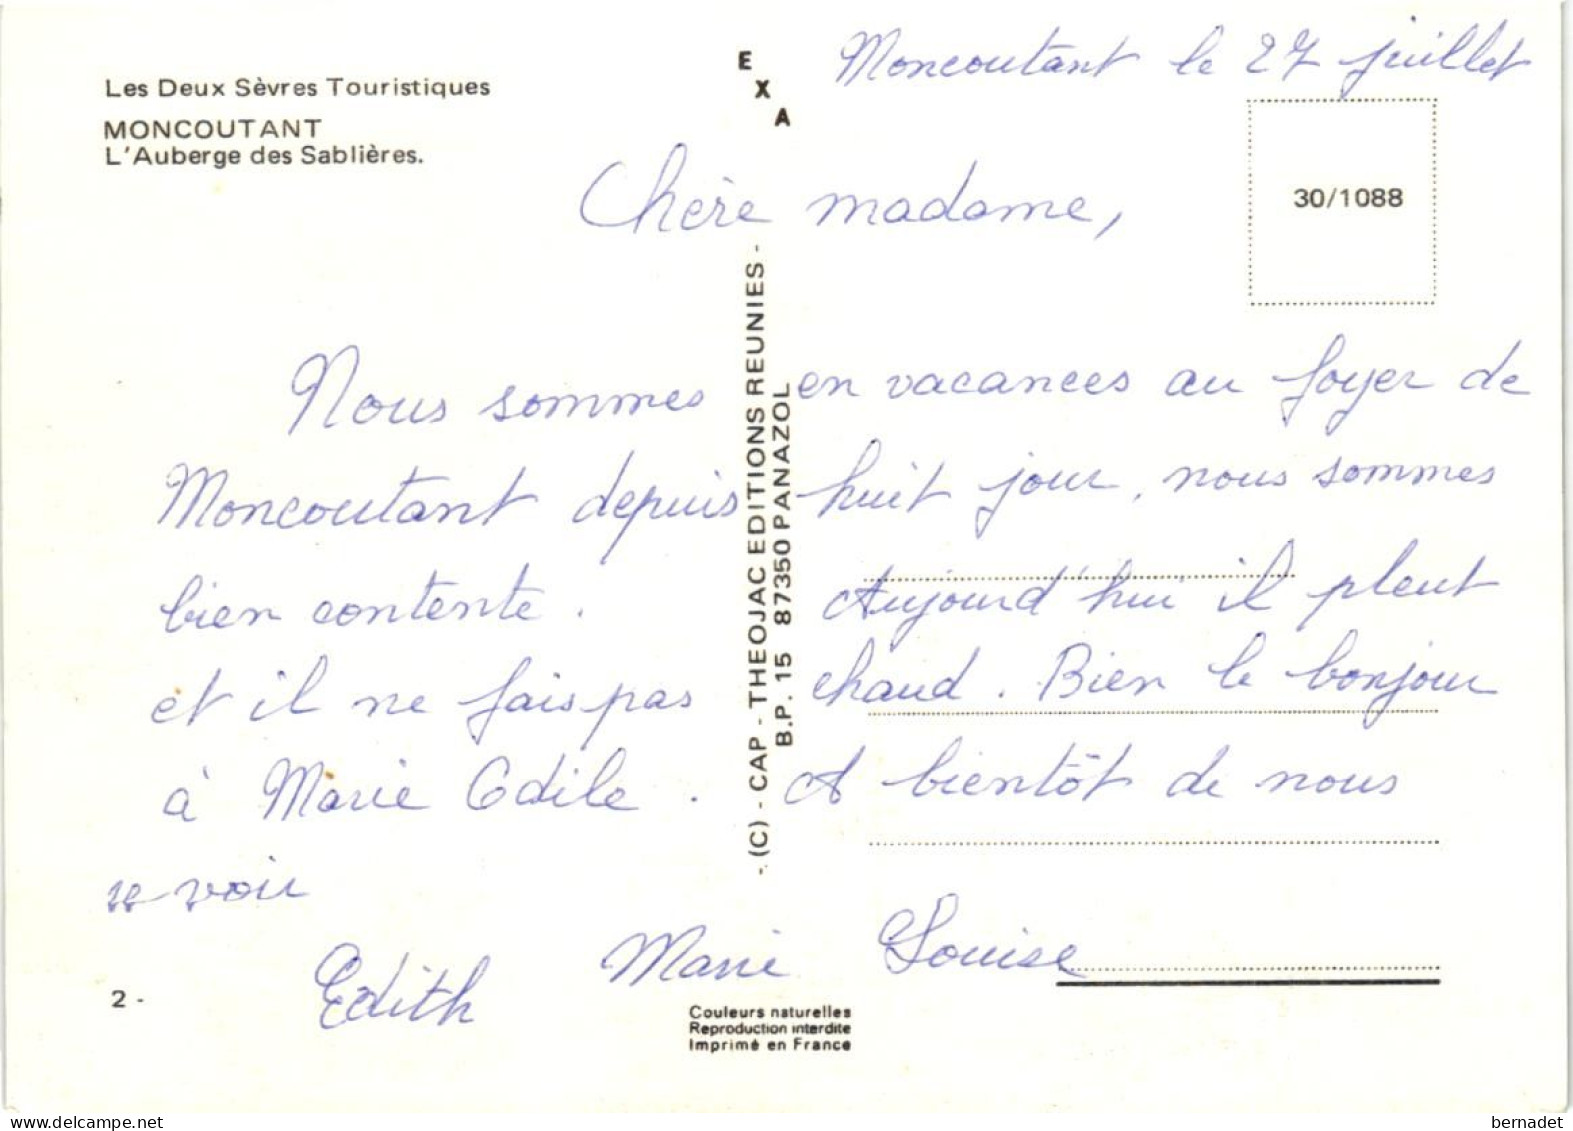 Les Deux Sèvres Touristiques
MONCOUTANT
L'Auberge des Sablières.
E
X
A
Moncoutant le 27 juillet
30/1088
Chère madame,
Nous sommes en vacances au foyer de
Moncoutant depuis huit jour, nous sommes
bien contente. Aujourd'hui il pleut
et il ne fais pas chaud. Bien le bonjour
à Marie Odile. A bientôt de nous
voir
Edith Marie Louise
- (C) - CAP - THEOJAC EDITIONS REUNIES -
B.P. 15 87350 PANAZOL
2 -
Couleurs naturelles
Reproduction interdite
Imprimé en France
www.delcampe.net
bernadet